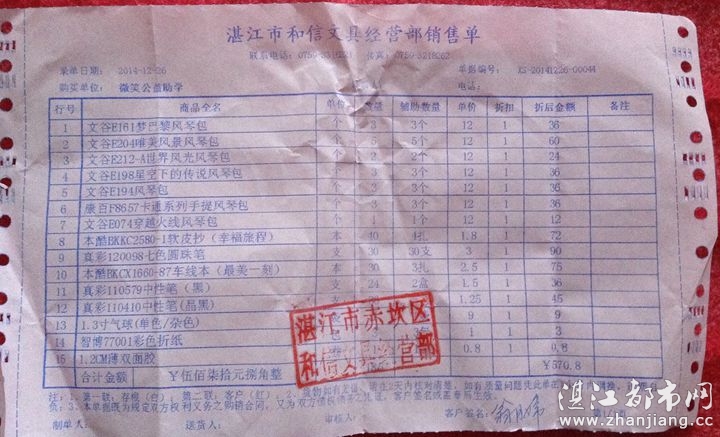 湛江市和信文具经营部销售单
联系电话：0759- 传真：0759-3218262
录单日期： 2014-12-26 单据编号： XS-20141226-00044
购买单位： 微笑公益助学
行号 商品全名 单位 数量 辅助数量 单价 折扣 折后金额 备注
1 文谷E161梦巴黎风琴包 个 3 3个 12 1 36
2 文谷E204唯美风景风琴包 个 5 5个 12 1 60
3 文谷E212-A世界风光风琴包 个 2 2个 12 1 24
4 文谷E198星空下的传说风琴包 个 3 3个 12 1 36
5 文谷E194风琴包 个 3 3个 12 1 36
6 康百F8657卡通系列手提风琴包 个 3 3个 12 1 36
7 文谷E074穿越火线风琴包 个 1 1个 12 1 12
8 本酷BKKC2580-1软皮抄（幸福旅程） 本 40 4扎 1.8 1 72
9 真彩120098七色圆珠笔 支 30 30支 3 1 90
10 本酷BKCX1660-87车线本（最美一刻） 本 30 3扎 2.5 1 75
11 真彩110579中性笔（黑） 支 24 2盒 1.5 1 36
12 真彩110410中性笔(晶黑) 1.25 1 45
13 1.3寸气球(单色/杂色) 9 1 9
14 智博77001彩色折纸 1 3
15 1.2CM薄双面胶 0.8 1 0.8
合计金额 ￥伍佰柒拾元捌角整 ￥570.8
湛江市赤坎区
和信文具经营部
注：1.第一联：存根（白） 第二联：客户（红） 2.货物如有差错，请在2天内核对清楚，如有质量问题凭此单在
3.本单据既为规定双方权利义务之购销合同，又为双方债权债务之凭证，客户签名或盖章后生效。
制单人： 送货人： 审核人： 客户签名：
湛江都市网
www.zhanjiang.cc